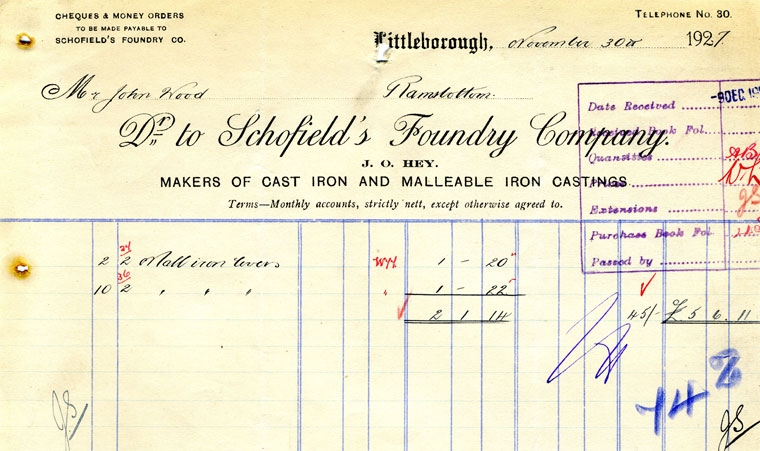 CHEQUES & MONEY ORDERS
TO BE MADE PAYABLE TO
SCHOFIELD'S FOUNDRY CO.
TELEPHONE NO. 30.
Littleborough, November 30th 1927.
Mr John Wood Ramsbottom.
Dr to Schofield's Foundry Company.
J. O. HEY.
MAKERS OF CAST IRON AND MALLEABLE IRON CASTINGS.
Terms—Monthly accounts, strictly nett, except otherwise agreed to.
-9 DEC 19
Date Received
Book Fol.
Quantities
Extensions
Purchase Book Fol.
Passed by
24
2 2 Mall iron levers 1 - 20
36
10 2 " " " " 1 - 22
2 1 14 45/- £ 5 6. 11
142
JS
JS